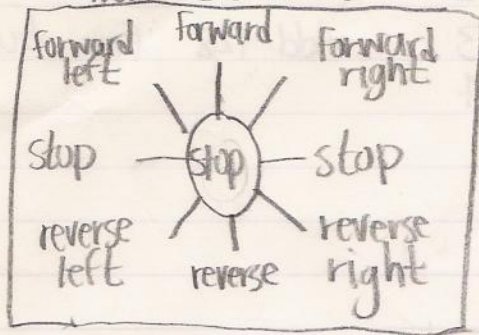 forward left
forward
forward right
stop
stop
stop
reverse left
reverse
reverse right